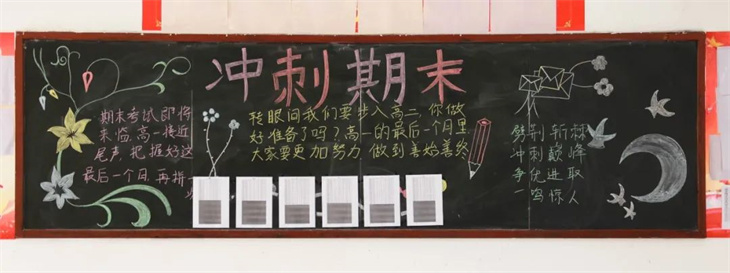 冲刺期末
期末考试即将
来临,高一接近
尾声,把握好这
最后一个月,再拼一
次
转眼间我们要步入高二,你做
好准备了吗?高一的最后一个月里
大家要更加努力,做到善始善终
劈荆斩棘
冲刺巅峰
争优进取
一鸣惊人